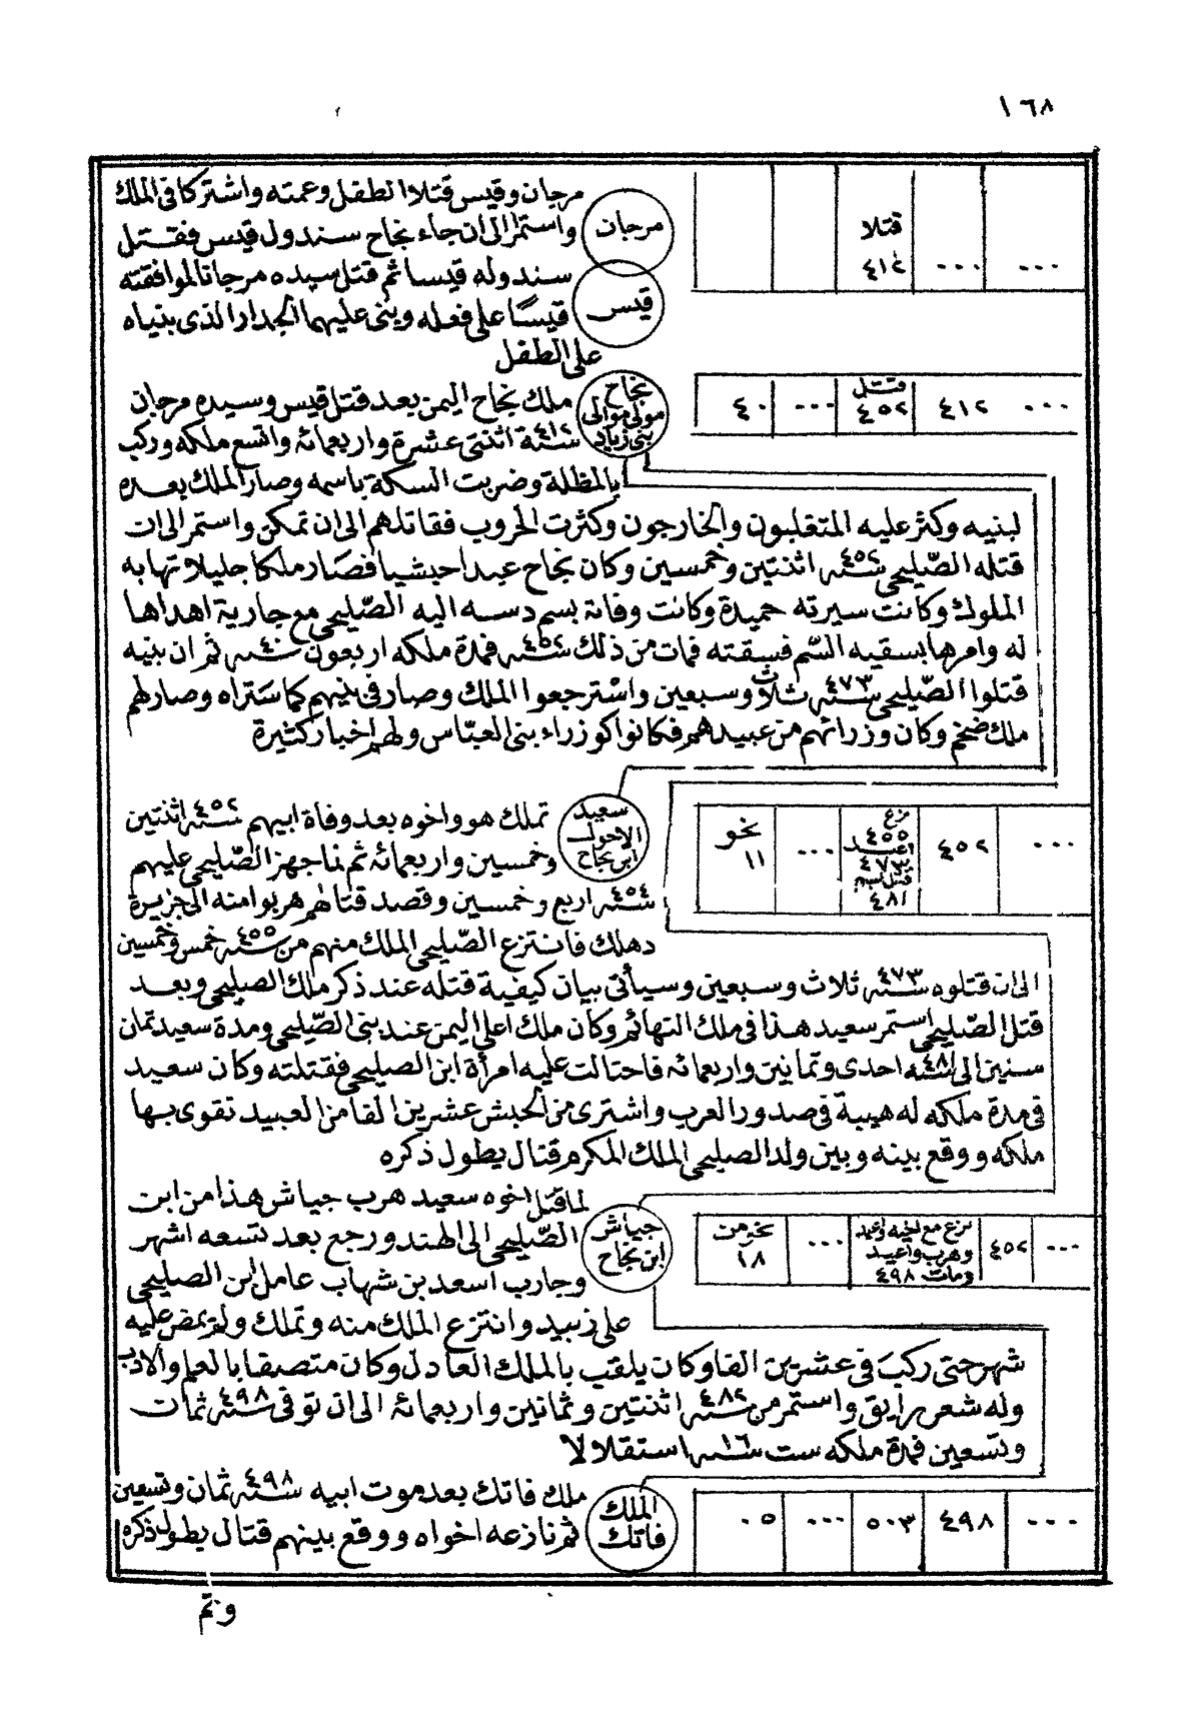 ١٦٨
... ... قتلا ٤١٢
مرجان
قيس
مرجان وقيس قتلا الطفل وعمته واشتركا فى الملك
واستمرا الى ان جاء نجاح سندول قيس فقتل
سندوله قيسا ثم قتل سيده مرجانا لموافقته
قيسًا على فعله وبنى عليهما الجدار الذى بنياه
على الطفل
... ٤١٢ قتل ٤٥٢ ... ٤٠
نجاح
مولى موالى
بنى زياد
ملك نجاح اليمن بعد قتل قيس وسيده مرجان
سنة ٤١٢ اثنتى عشرة واربعمائه واتسع ملكه وركب
بالمظلة وضربت السكة باسمه وصار الملك بعده
لبنيه وكثر عليه المتغلبون والخارجون وكثرت الحروب فقاتلهم الى ان تمكن واستمر الى ان
قتله الصّليحى سنه ٤٥٢ اثنتين وخمسين وكان نجاح عبدا حبشيا فصار ملكا جليلا تهابه
الملوك وكانت سيرته حميدة وكانت وفاته بسم دسه اليه الصّليحى مع جارية اهداها
له وامرها بسقيه السّم فسقته فمات من ذلك سنه ٤٥٢ فمدة ملكه اربعون ٤٠ سنه ثم ان بنيه
قتلوا الصّليحى سنه ٤٧٣ ثلاث وسبعين واسترجعوا الملك وصار فى بنيهم كما ستراه وصار لهم
ملك ضخم وكان وزرائهم من عبيدهم فكانوا كوزراء بنى العبّاس ولهم اخبار كثيرة
... ٤٥٢ نزع ٤٥٥ اعيد ٤٧٣ قتل بسم ٤٨١ ... نحو ١١
سعيد
الاحول
ابن نجاح
تملك هو واخوه بعد وفاة ابيهم سنه ٤٥٢ اثنتين
وخمسين واربعمائه ثم لما جهز الصّليحى عليهم
سنه ٤٥٤ اربع وخمسين وقصد قتالهم هربوا منه الى جزيرة
دهلك فانتزع الصّليحى الملك منهم من سنه ٤٥٥ خمس وخمسين
الى ان قتلوه سنه ٤٧٣ ثلاث وسبعين وسيأتى بيان كيفية قتله عند ذكر ملك الصليحى وبعد
قتل الصّليحى استمر سعيد هذا فى ملك التهائم وكان ملك اعلى اليمن عند بنى الصّليحى ومدة سعيد ثمان
سنين الى سنه ٤٨١ احدى وثمانين واربعمائه فاحتالت عليه امرأة ابن الصليحى فقتلته وكان سعيد
فى مدة ملكه له هيبة فى صدور العرب واشترى من الحبش عشرين الفا من العبيد تقوى بها
ملكه ووقع بينه وبين ولد الصليحى الملك المكرم قتال يطول ذكره
... ٤٥٢ نزع مع اخيه واعيد وهرب واعيد ومات ٤٩٨ ... نحو من ١٨
جياش
ابن نجاح
لما قتل اخوه سعيد هرب جياش هذا من ابن
الصّليحى الى الهند ورجع بعد تسعه اشهر
وحارب اسعد بن شهاب عامل ابن الصليحى
على زبيد وانتزع الملك منه وتملك ولم يمض عليه
شهر حتى ركب فى عشرين الفا وكان يلقب بالملك العادل وكان متصفا بالعلم والادب
وله شعر رايق واستمر من سنه ٤٨٢ اثنتين وثمانين واربعمائه الى ان توفى سنه ٤٩٨ ثمان
وتسعين فمدة ملكه ست ١٦ سنه استقلالا
... ٤٩٨ ٥٠٣ ... ٠٥
الملك
فاتك
ملك فاتك بعد موت ابيه سنه ٤٩٨ ثمان وتسعين
ثم نازعه اخواه ووقع بينهم قتال يطول ذكره
وتم